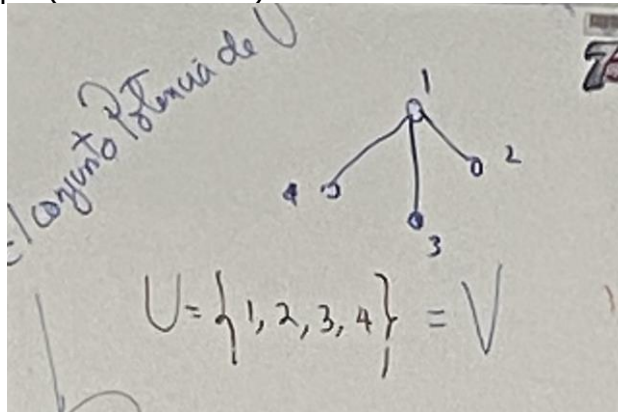 El conjunto Potencia de U
1
2
4
3
U = {1, 2, 3, 4} = V